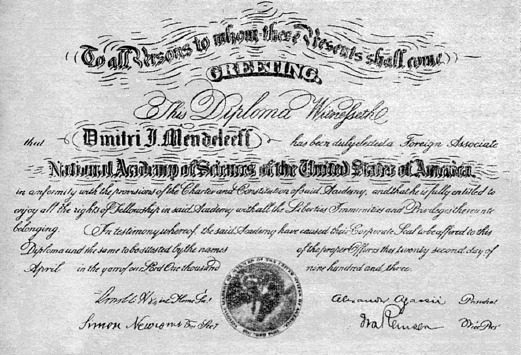 To all Persons to whom these Presents shall come,
GREETING.
This Diploma Witnesseth
that Dmitri I. Mendeleeff has been duly elected a Foreign Associate
National Academy of Sciences of the United States of America
in conformity with the provisions of the Charter and Constitution of said Academy, and that he is fully entitled to
enjoy all the rights of Fellowship in said Academy with all the Liberties Immunities and Privileges thereunto
belonging. In testimony whereof, the said Academy have caused their Corporate Seal to be affixed to this
Diploma and the same to be attested by the names of the proper Officers this twenty second day of
April in the year of our Lord One thousand nine hundred and three.
Arnold Home Sec.
Alexander Agassiz President
Simon Newcomb For. Sec.
Ira Remsen Vice Pres